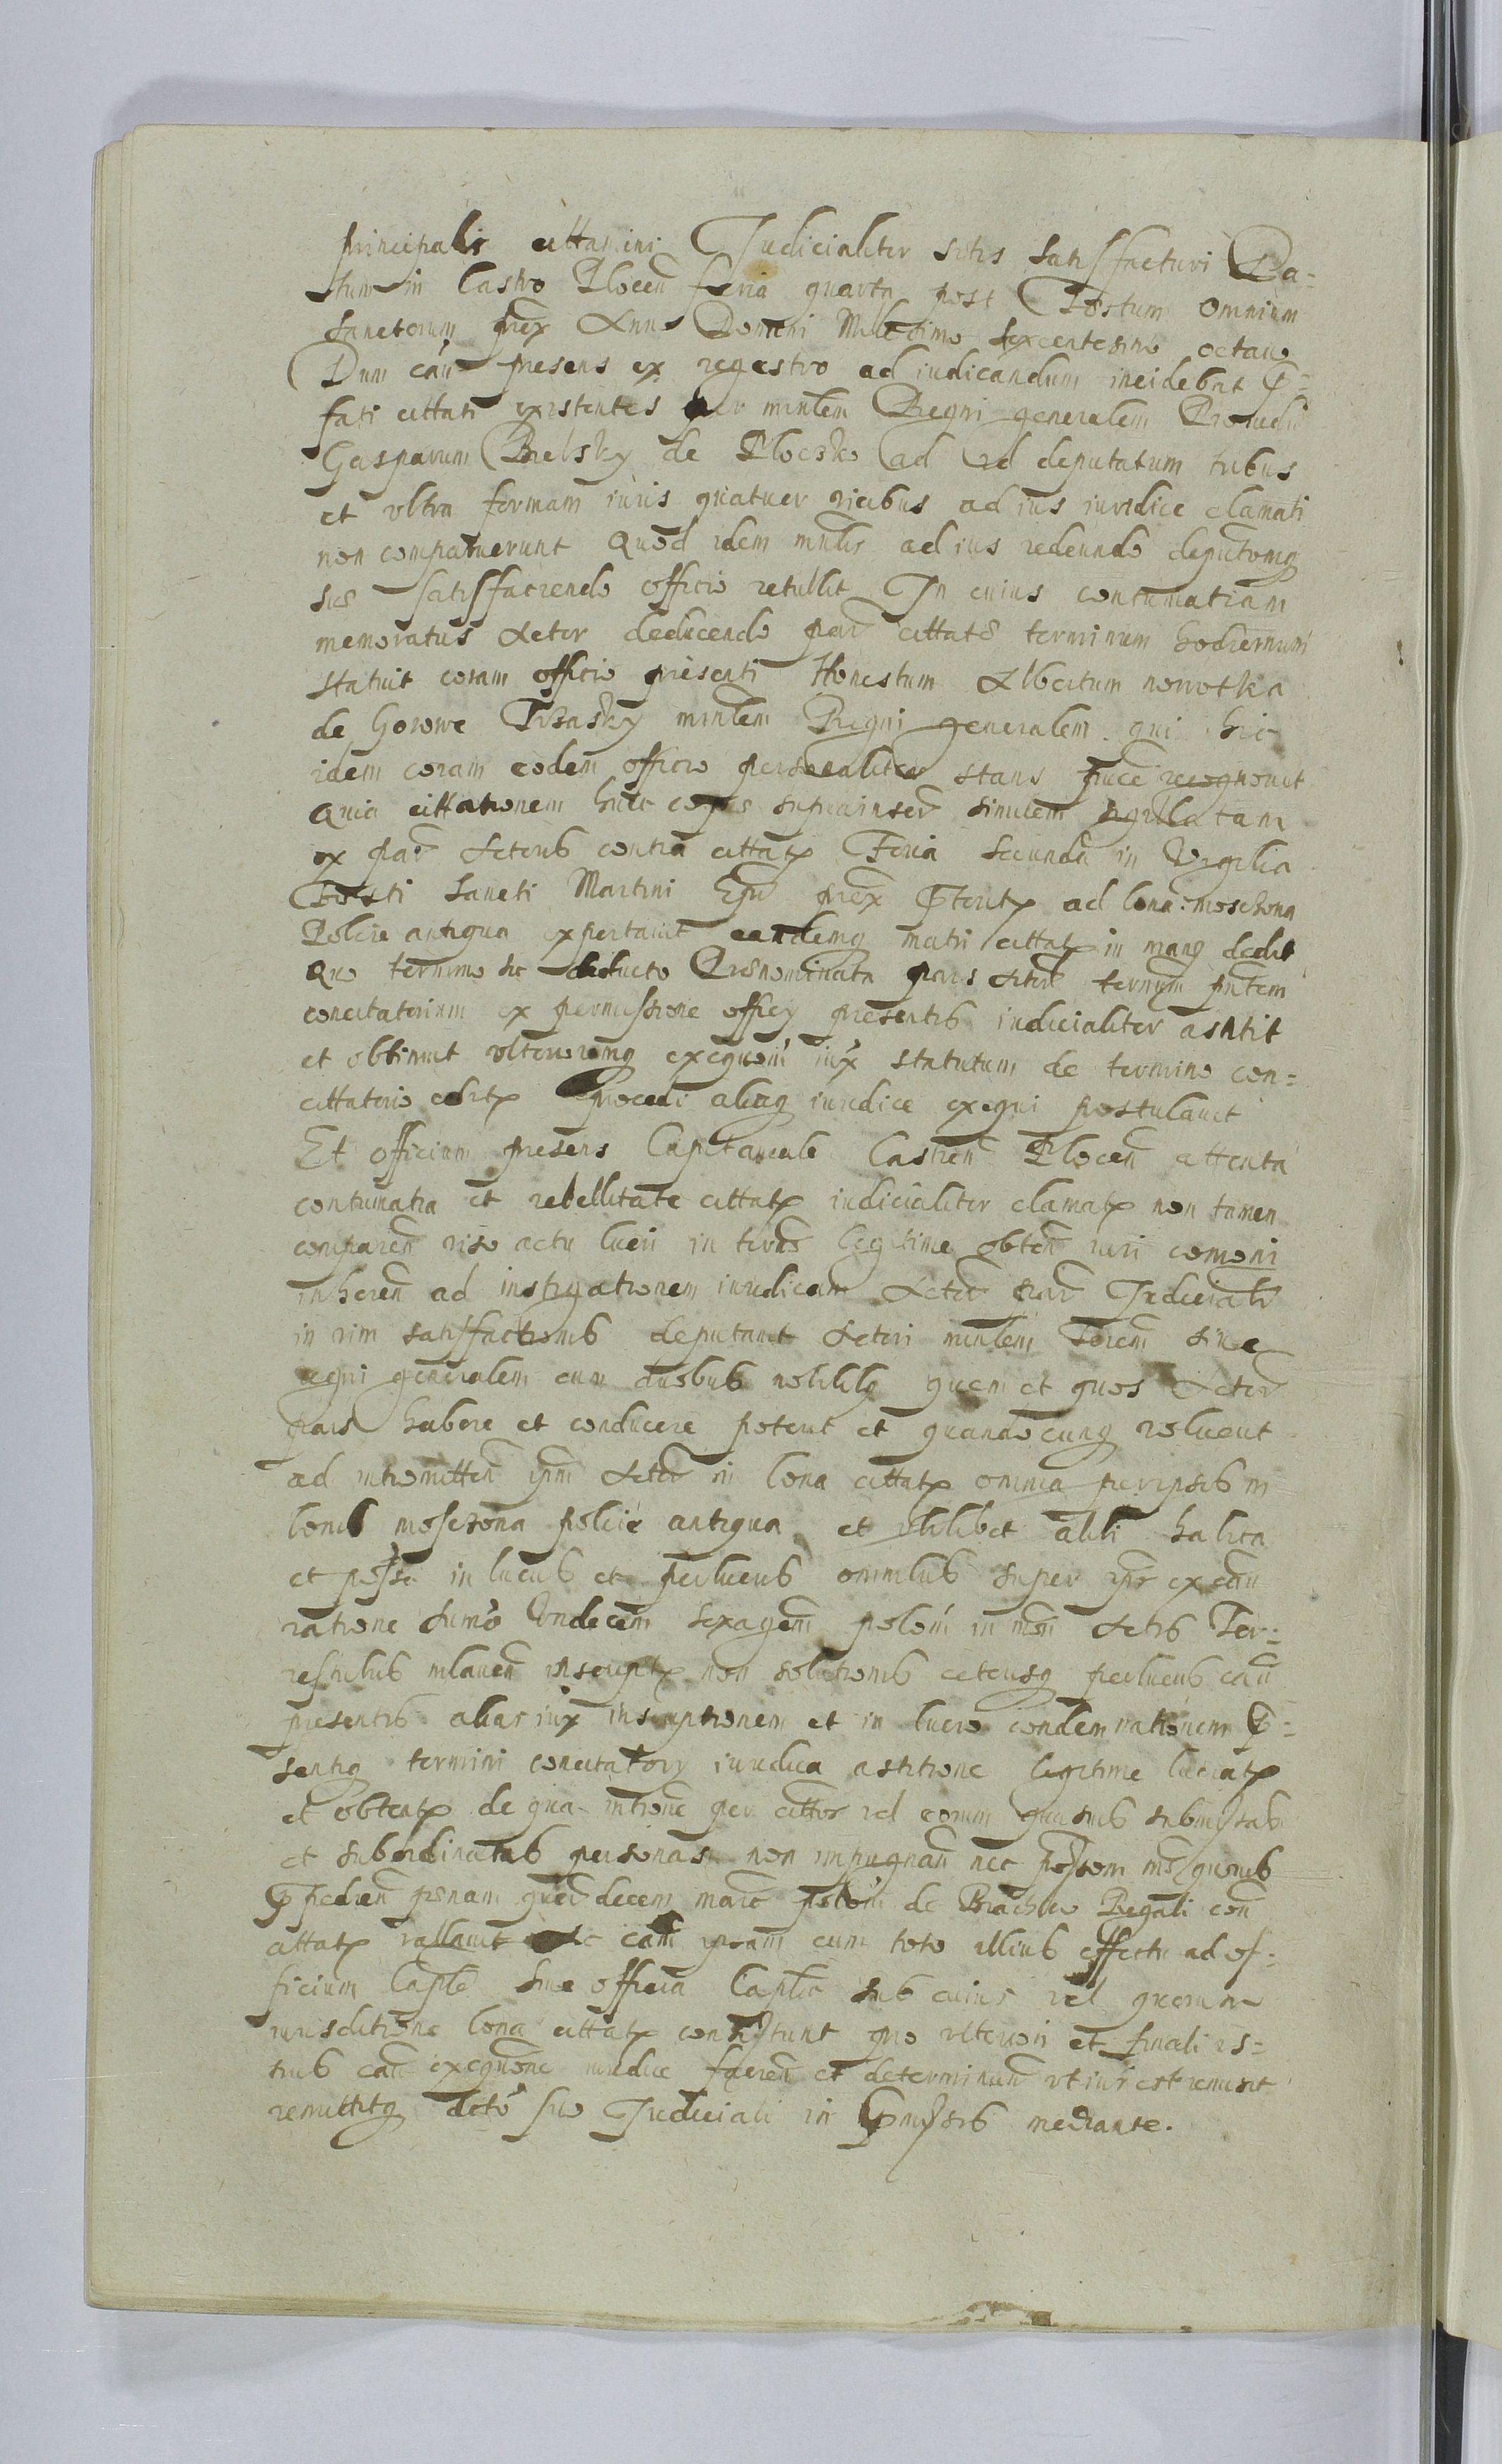 principalis citta ini Judicialiter sitis satisfacturi Da-
tum in Castro Plocen feria quarta post Festum omnium
sanctorum prox Anno Domini Millesimo sexcentesimo octavo
Dum cau presens ex regestro ad iudicandum incidebat P-
fati cittati existentes per minlem Regni generalem Providu
Gasparum Bielsky de Plocsko ad id deputatum tribus
et ultra formam iuris quatuor vicibus ad ius iuridice clamati
non comparuerunt Quod idem minlis ad ius redeundo deputomq
suo satisfaciendo officio retullit In cuius contumatiam
memoratus Actor deducendo par cittatis terminum hodiernum
statuit coram officio presenti Honestum Albertum nowotka
de Gorowe Trzasky minlem Regni generalem qui hic
idem coram eodem officio personaliter stans recognovit
Quia cittationem huic supra inser similem sigillatam
ex par Actoris contra cittatp Feria secunda in Vigilia
Festi Sancti Martini prox pteritp ad bona moschona
Polcie antiqua exportavit eandemq matri cittatp in manq dedit
Quo termino sic deducto Prenominata pars Actor pntem
concitatorium ex permissione officy presentis iudicialiter astitit
et obtinuit ulterioremq exequoni iux statutum de termino con-
cittatorio editp procedi aliaq iuridice exequi postulavit
Et officium presens Capitaneale Castren Plocen attenta
contumatia et rebellitate cittatp iudicialiter clamatp non tamen
comparen viso actu lucri in terno legitime obten iuri comoni
inheren ad instigationem iuridicam Actor par Judicialr
in vim satisfactionis deputavit Actori minlem Teren sive
regni generalem cum duobus nobilibq quem et quos Actor
pars habere et conducere poterit et quandocunq voluerit
ad intromitten ipm Actor in bona cittatp omnia in
bonis moschona polcie antiqua et ubilibet alibi habita
et possa in lucris et perlucris omnibus super ips ex cau
ratione sumo Undecem sexagem polon in mon Actis Ter-
restribus mlaven inscriptp non solutionis ceterisq perlucris cau
presentis alias iux inscriptionem et in lucro condemnationem P-
sentiq termini concitatory iuridica astitione legitime lucratp
et obtentp de qua intione per cittos vel eorum quasvis submissas
et subordinatas personas non impugnan nec
pedien penam quatdecem marc polon de Brachio Regali con
cittatp vallavit cam ipsam cum toto illius effectu ad of-
ficium Caple sive officia Caplia sub cuius vel quorum
iurisditione bona cittatp consistunt pro ulteriori et finali is-
tius cau exequone iuridice facien et determinan ut iuris est remisit
remittitq dcto suo Judiciali in pmissis mediante.